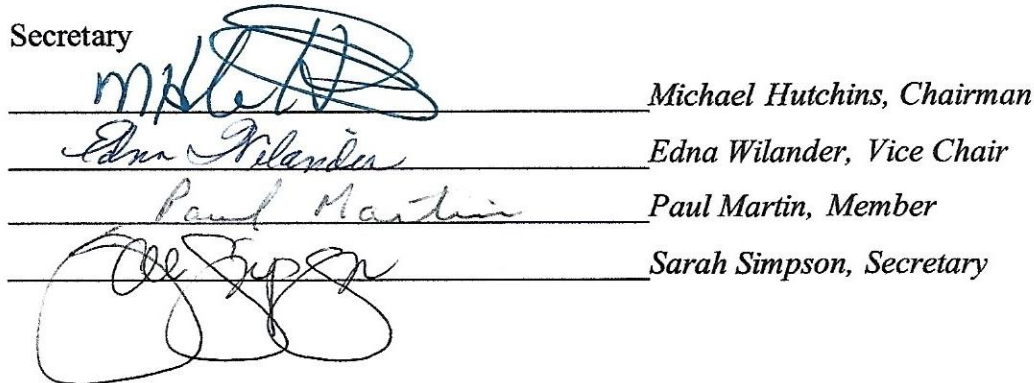 Secretary
Michael Hutchins, Chairman
Edna Wilander Edna Wilander, Vice Chair
Paul Martin Paul Martin, Member
Simpson Sarah Simpson, Secretary